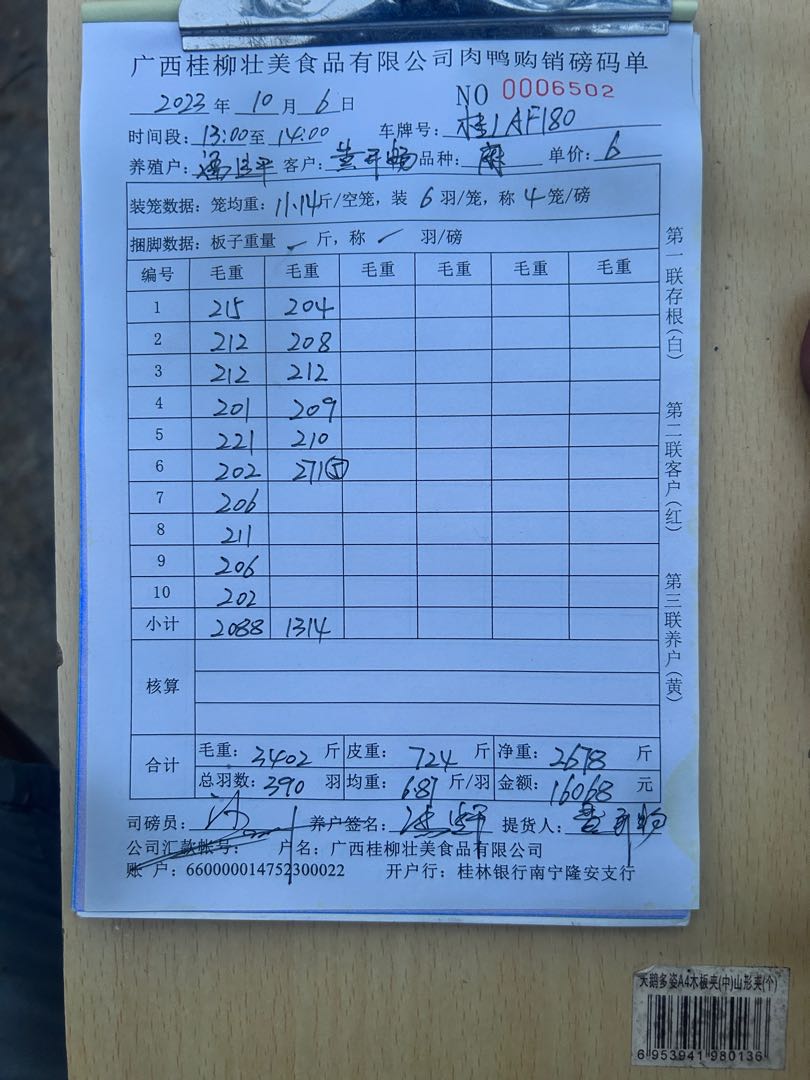 广西桂柳壮美食品有限公司肉鸭购销磅码单
2023 年 10 月 6 日 NO 0006502
时间段: 13:00 至 14:00 车牌号: 桂LAF180
养殖户: 客户: 黄开畅 品种: 麻 单价: 6
装笼数据: 笼均重: 11.14 斤/空笼, 装 6 羽/笼, 称 4 笼/磅
捆脚数据: 板子重量 斤, 称 羽/磅
编号 毛重 毛重 毛重 毛重 毛重 毛重
1 215 204
2 212 208
3 212 212
4 201 209
5 221 210
6 202 271⑤
7 206
8 211
9 206
10 202
小计 2088 1314
核算
合计 毛重: 3402 斤 皮重: 724 斤 净重: 2678 斤
总羽数: 390 羽 均重: 6.87 斤/羽 金额: 16068 元
司磅员: 养户签名: 提货人: 黄开畅
公司汇款帐号: 户名: 广西桂柳壮美食品有限公司
账 户: 660000014752300022 开户行: 桂林银行南宁隆安支行
第一联存根(白) 第二联客户(红) 第三联养户(黄)
天鹅多姿A4木板夹(中)山形夹(个)
6 953941 980136